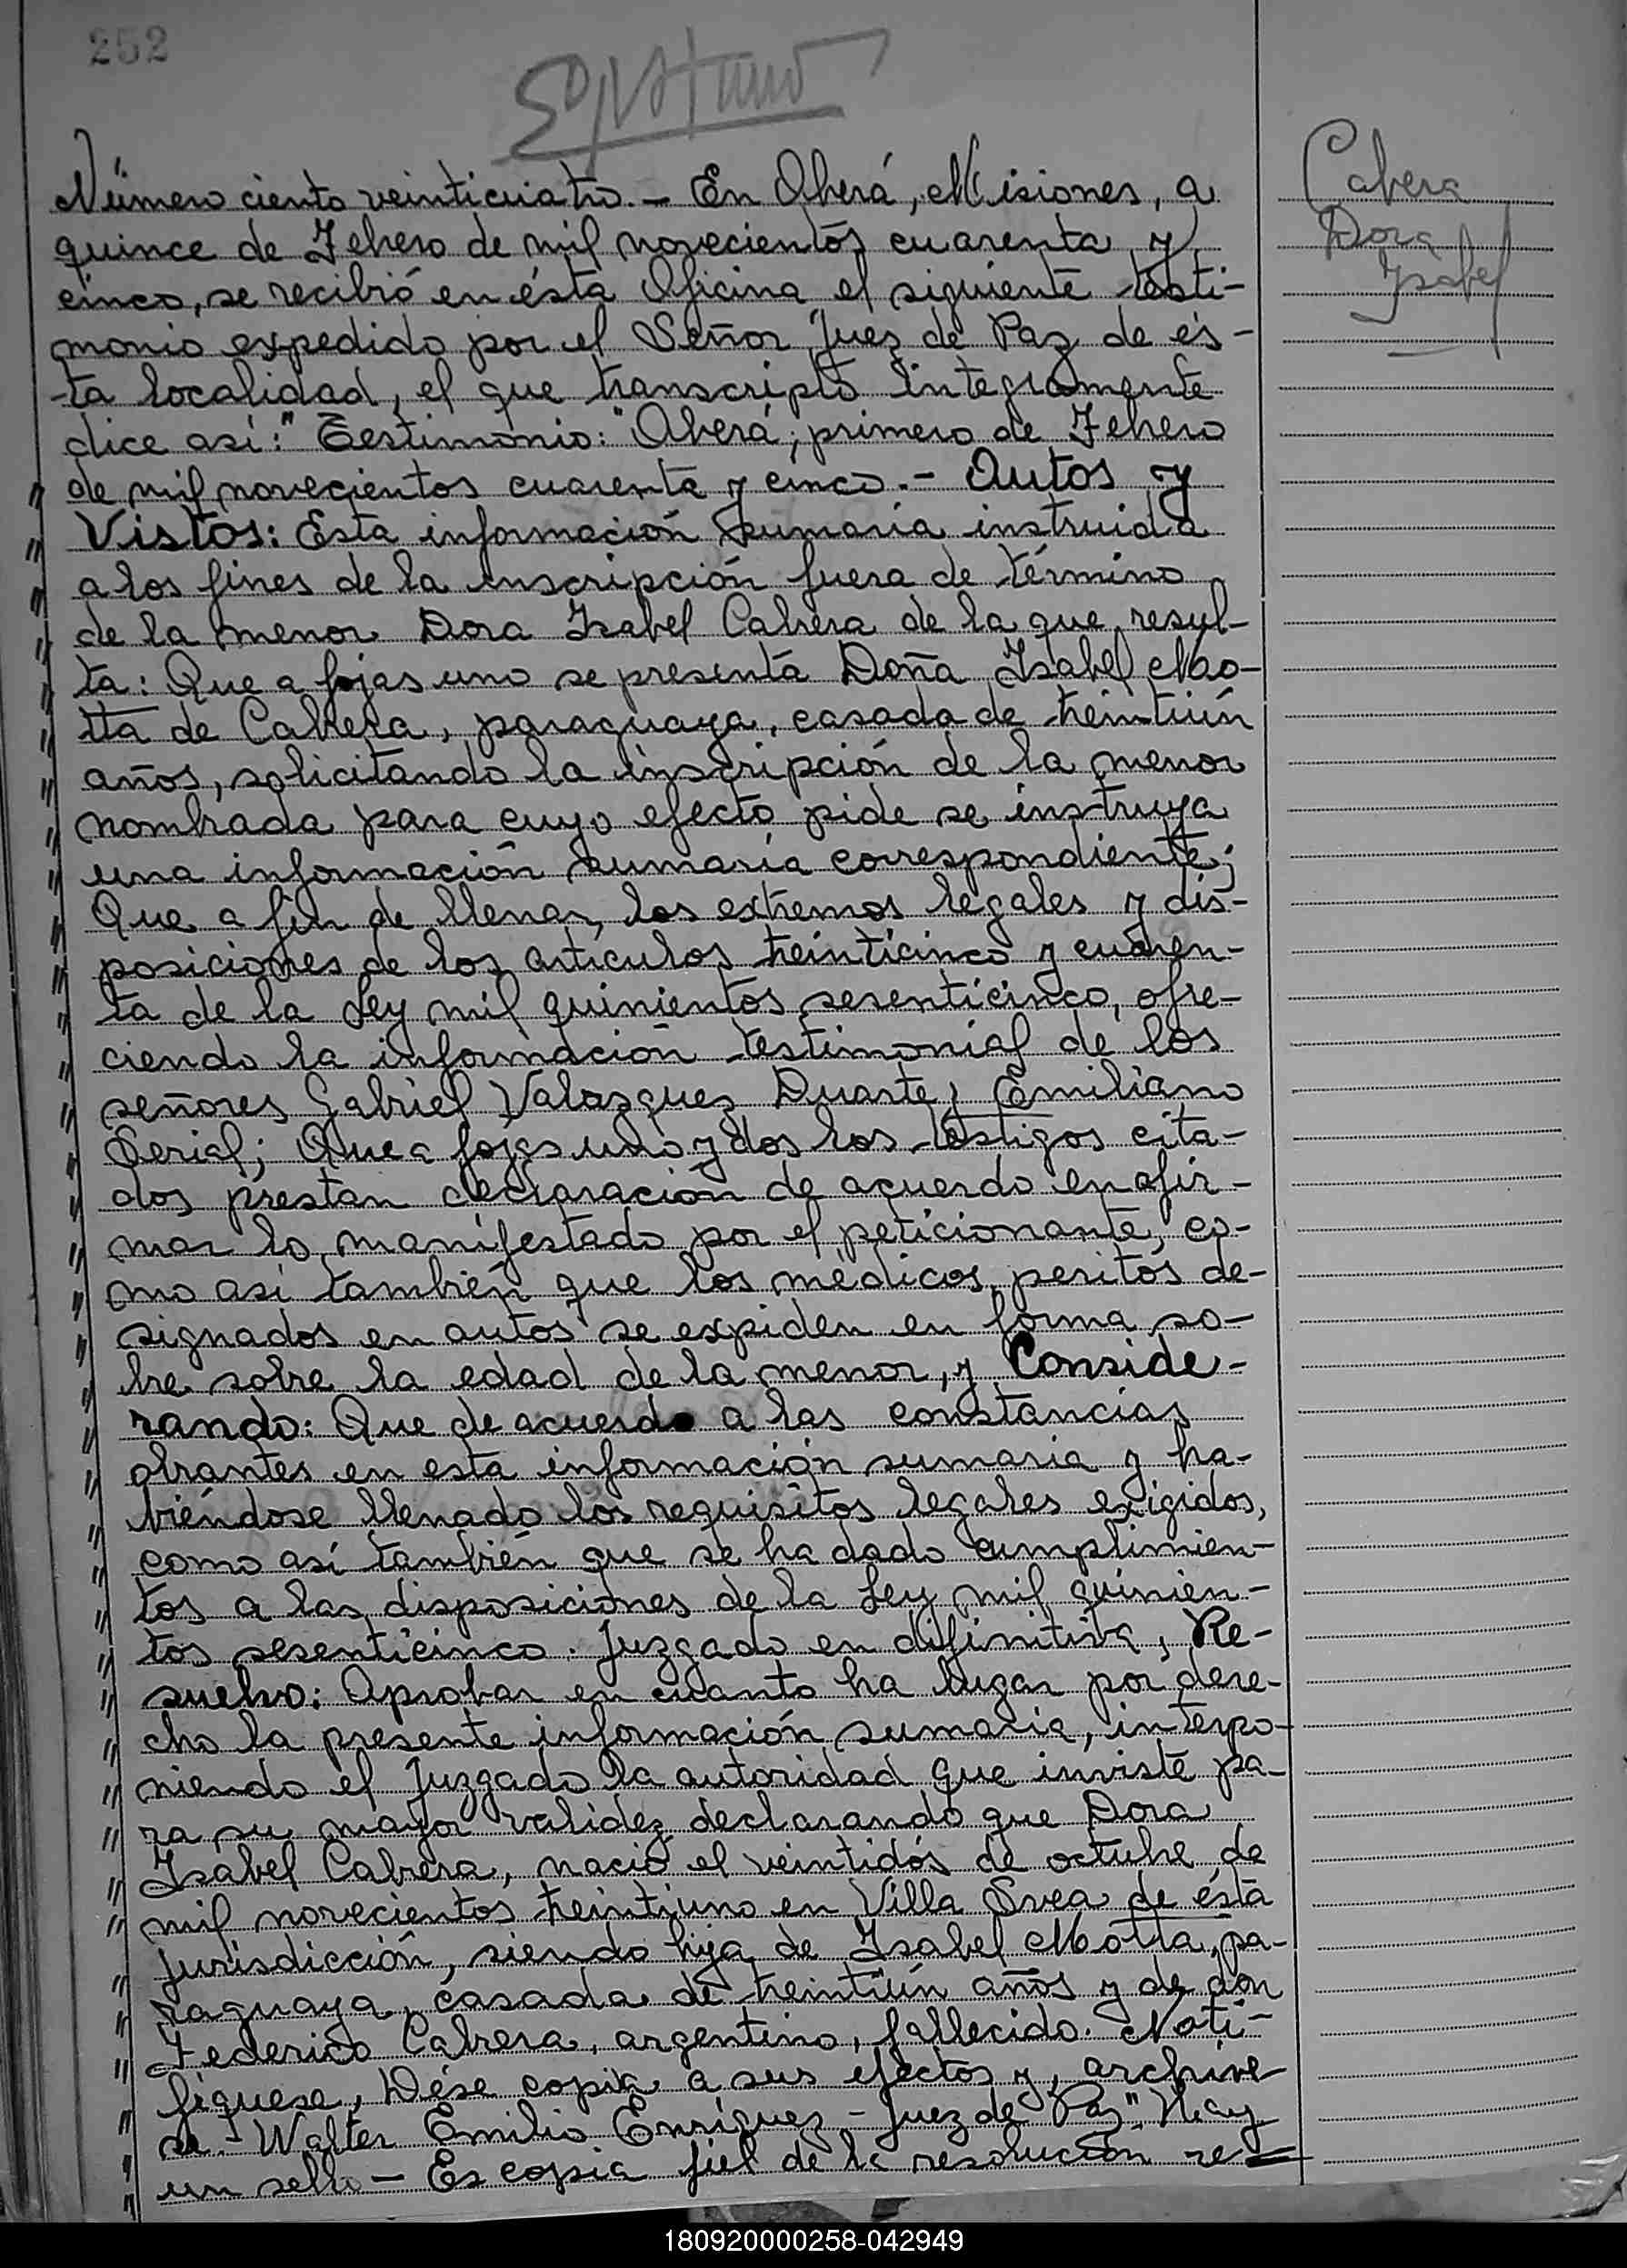 252
Número ciento veinticuatro.- En Oberá, Misiones, a
Cabrera
quince de Febrero de mil novecientos cuarenta y
Dora
cinco, se recibió en ésta Oficina el siguiente testi-
Isabel
monio expedido por el Señor Juez de Paz de és-
ta localidad, el que transcripto integramente
dice así:" Testimonio: "Oberá, primero de Febrero
" de mil novecientos cuarenta y cinco.- Autos y
" Vistos: Esta información sumaria instruida
" a los fines de la inscripción fuera de término
" de la menor Dora Isabel Cabrera de la que resul-
" ta: Que a fojas uno se presenta Doña Isabel Mao-
" tta de Cabrera, paraguaya, casada de treintiún
" años, solicitando la inscripción de la menor
" nombrada para cuyo efecto pide se instruya
" una información sumaria correspondiente;
" Que a fin de llenar los extremos legales y dis-
" posiciones de los artículos treinticinco y cuaren-
" ta de la Ley mil quinientos sesenticinco, ofre-
" ciendo la información testimonial de los
" señores Gabriel Valasquez Duarte y Emiliano
" Que a fojas uno y dos los testigos cita-
" dos prestan declaración de acuerdo en afir-
" mar lo manifestado por el peticionante, co-
" mo así también que los médicos peritos de-
" signados en autos se expiden en forma so-
" bre sobre la edad de la menor, y Conside-
" rando: Que de acuerdo a las constancias
" obrantes en esta información sumaria y ha-
" biéndose llenado los requisitos legales exigidos,
" como así también que se ha dado cumplimien-
" tos a las disposiciones de la Ley mil quinien-
" tos sesenticinco. Juzgado en difinitiva, Re-
" suelvo: Aprobar en cuanto ha lugar por dere-
" cho la presente información sumaria, interpo-
" niendo el Juzgado la autoridad que inviste pa-
" ra su mayor validez declarando que Dora
" Isabel Cabrera, nació el veintidós de octubre de
" mil novecientos treintiuno en Villa Svea de ésta
" jurisdicción, siendo hija de Isabel Motta, pa-
" raguaya, casada de treintiún años y de don
" Federico Cabrera, argentino, fallecido. Noti-
" fiquese, Dése copia a sus efectos y, archive
" se.- Walter Emilio Enríquez - Juez de Paz". Hay
" un sello - Es copia fiel de la resolución re-
180920000258-042949